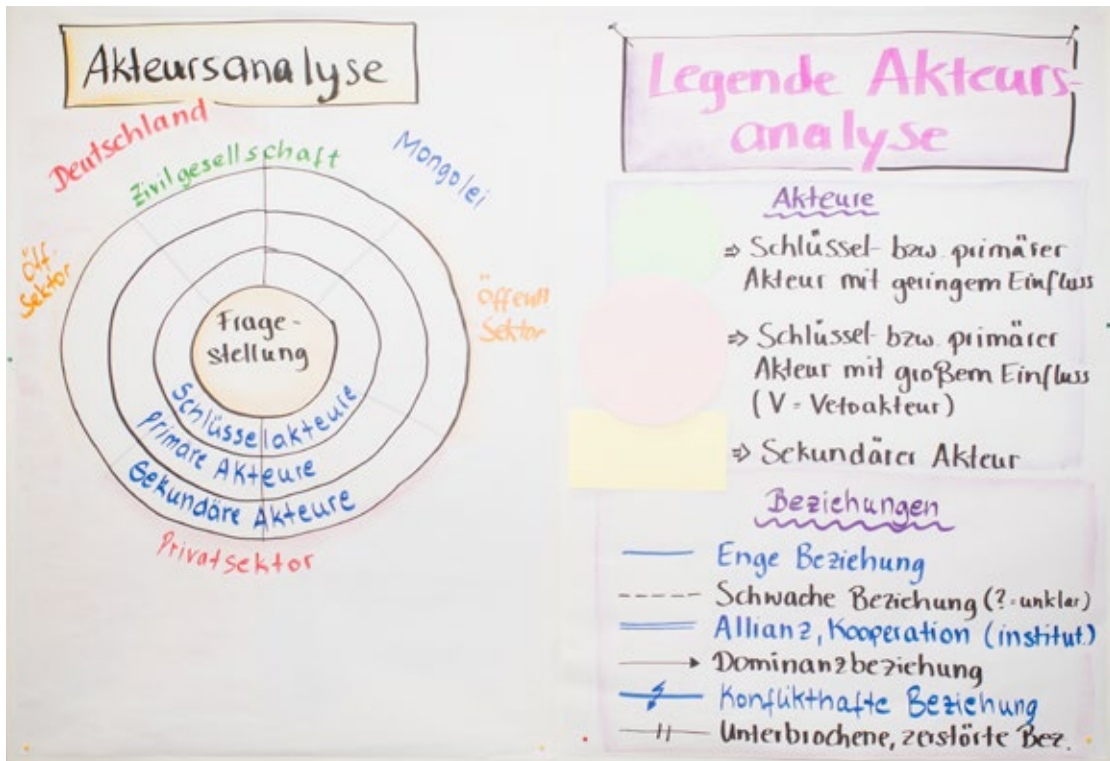 Akteursanalyse
Deutschland
Zivilgesellschaft
Mongolei
Öff.
Sektor
Öffentl
Sektor
Frage-
stellung
Schlüsselakteure
Primäre Akteure
Sekundäre Akteure
Privatsektor
Legende Akteurs-
analyse
Akteure
⇒ Schlüssel- bzw. primärer
Akteur mit geringem Einfluss
⇒ Schlüssel- bzw. primärer
Akteur mit großem Einfluss
(V = Vetoakteur)
⇒ Sekundärer Akteur
Beziehungen
Enge Beziehung
Schwache Beziehung (? = unklar)
Allianz, Kooperation (institut.)
Dominanzbeziehung
Konflikthafte Beziehung
Unterbrochene, zerstörte Bez.